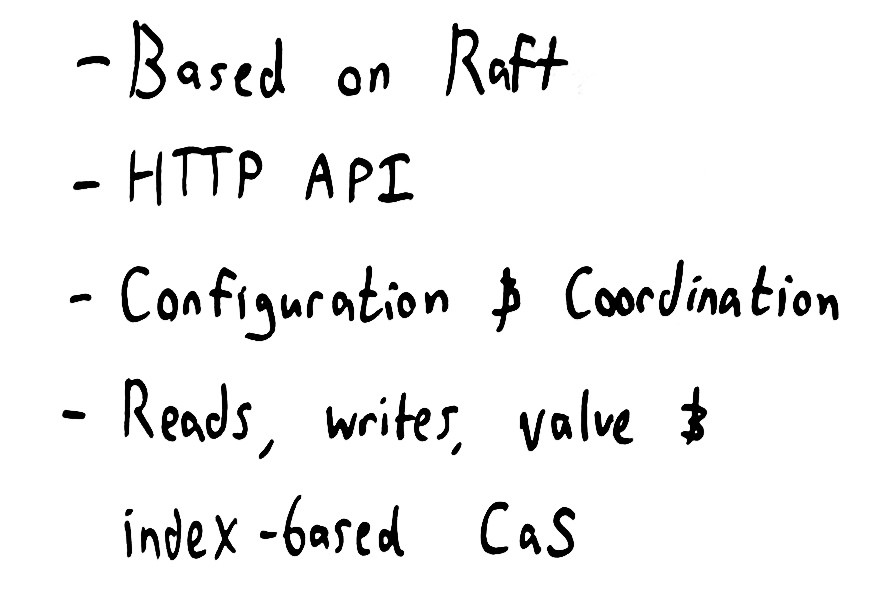 - Based on Raft
- HTTP API
- Configuration & Coordination
- Reads, writes, value &
index-based CaS